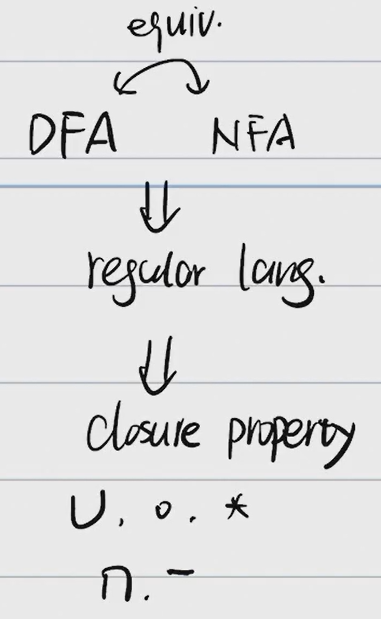 equiv.
DFA NFA
⇓
regular lang.
⇓
closure property
∪, ∘, *
∩, −